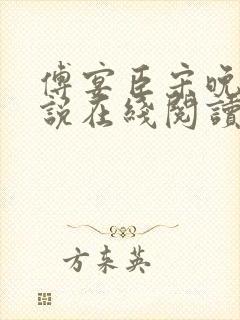 傅宴臣宋晚
說在綫閱讀
方夫英